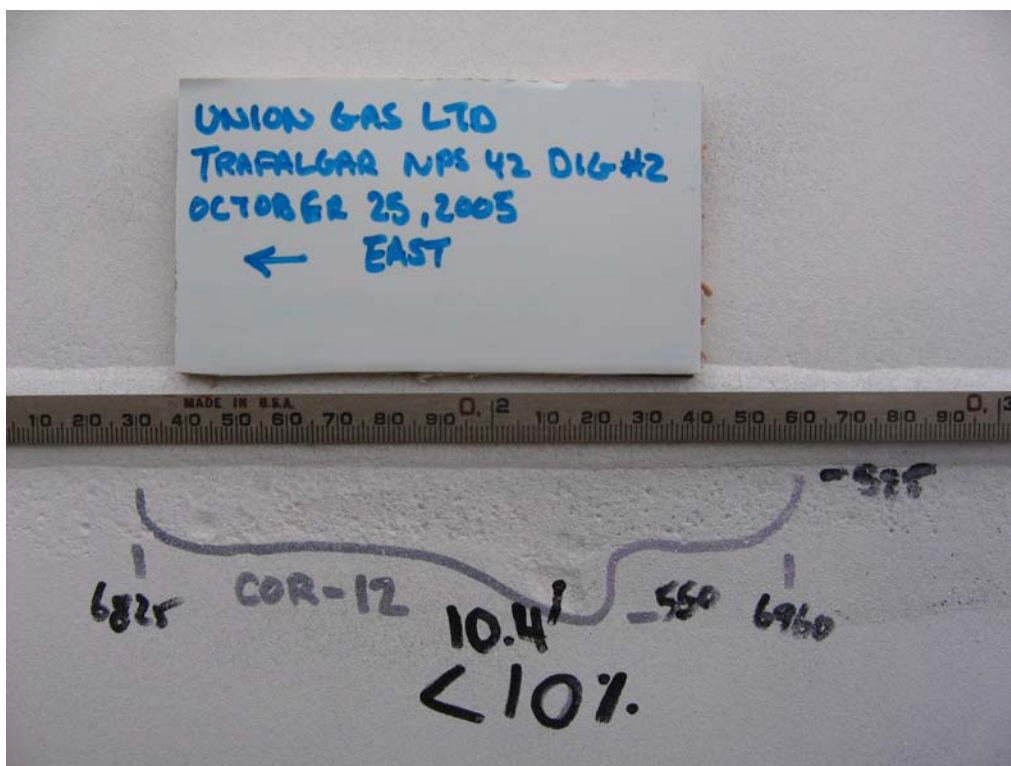 UNION GAS LTD
TRAFALGAR NPS 42 DIG #2
OCTOBER 25, 2005
← EAST
MADE IN U.S.A.
10 20 30 40 50 60 70 80 90 0,2 10 20 30 40 50 60 70 80 90 0,3
-525
6825 COR-12 -550 6960
10.4'
<10%.